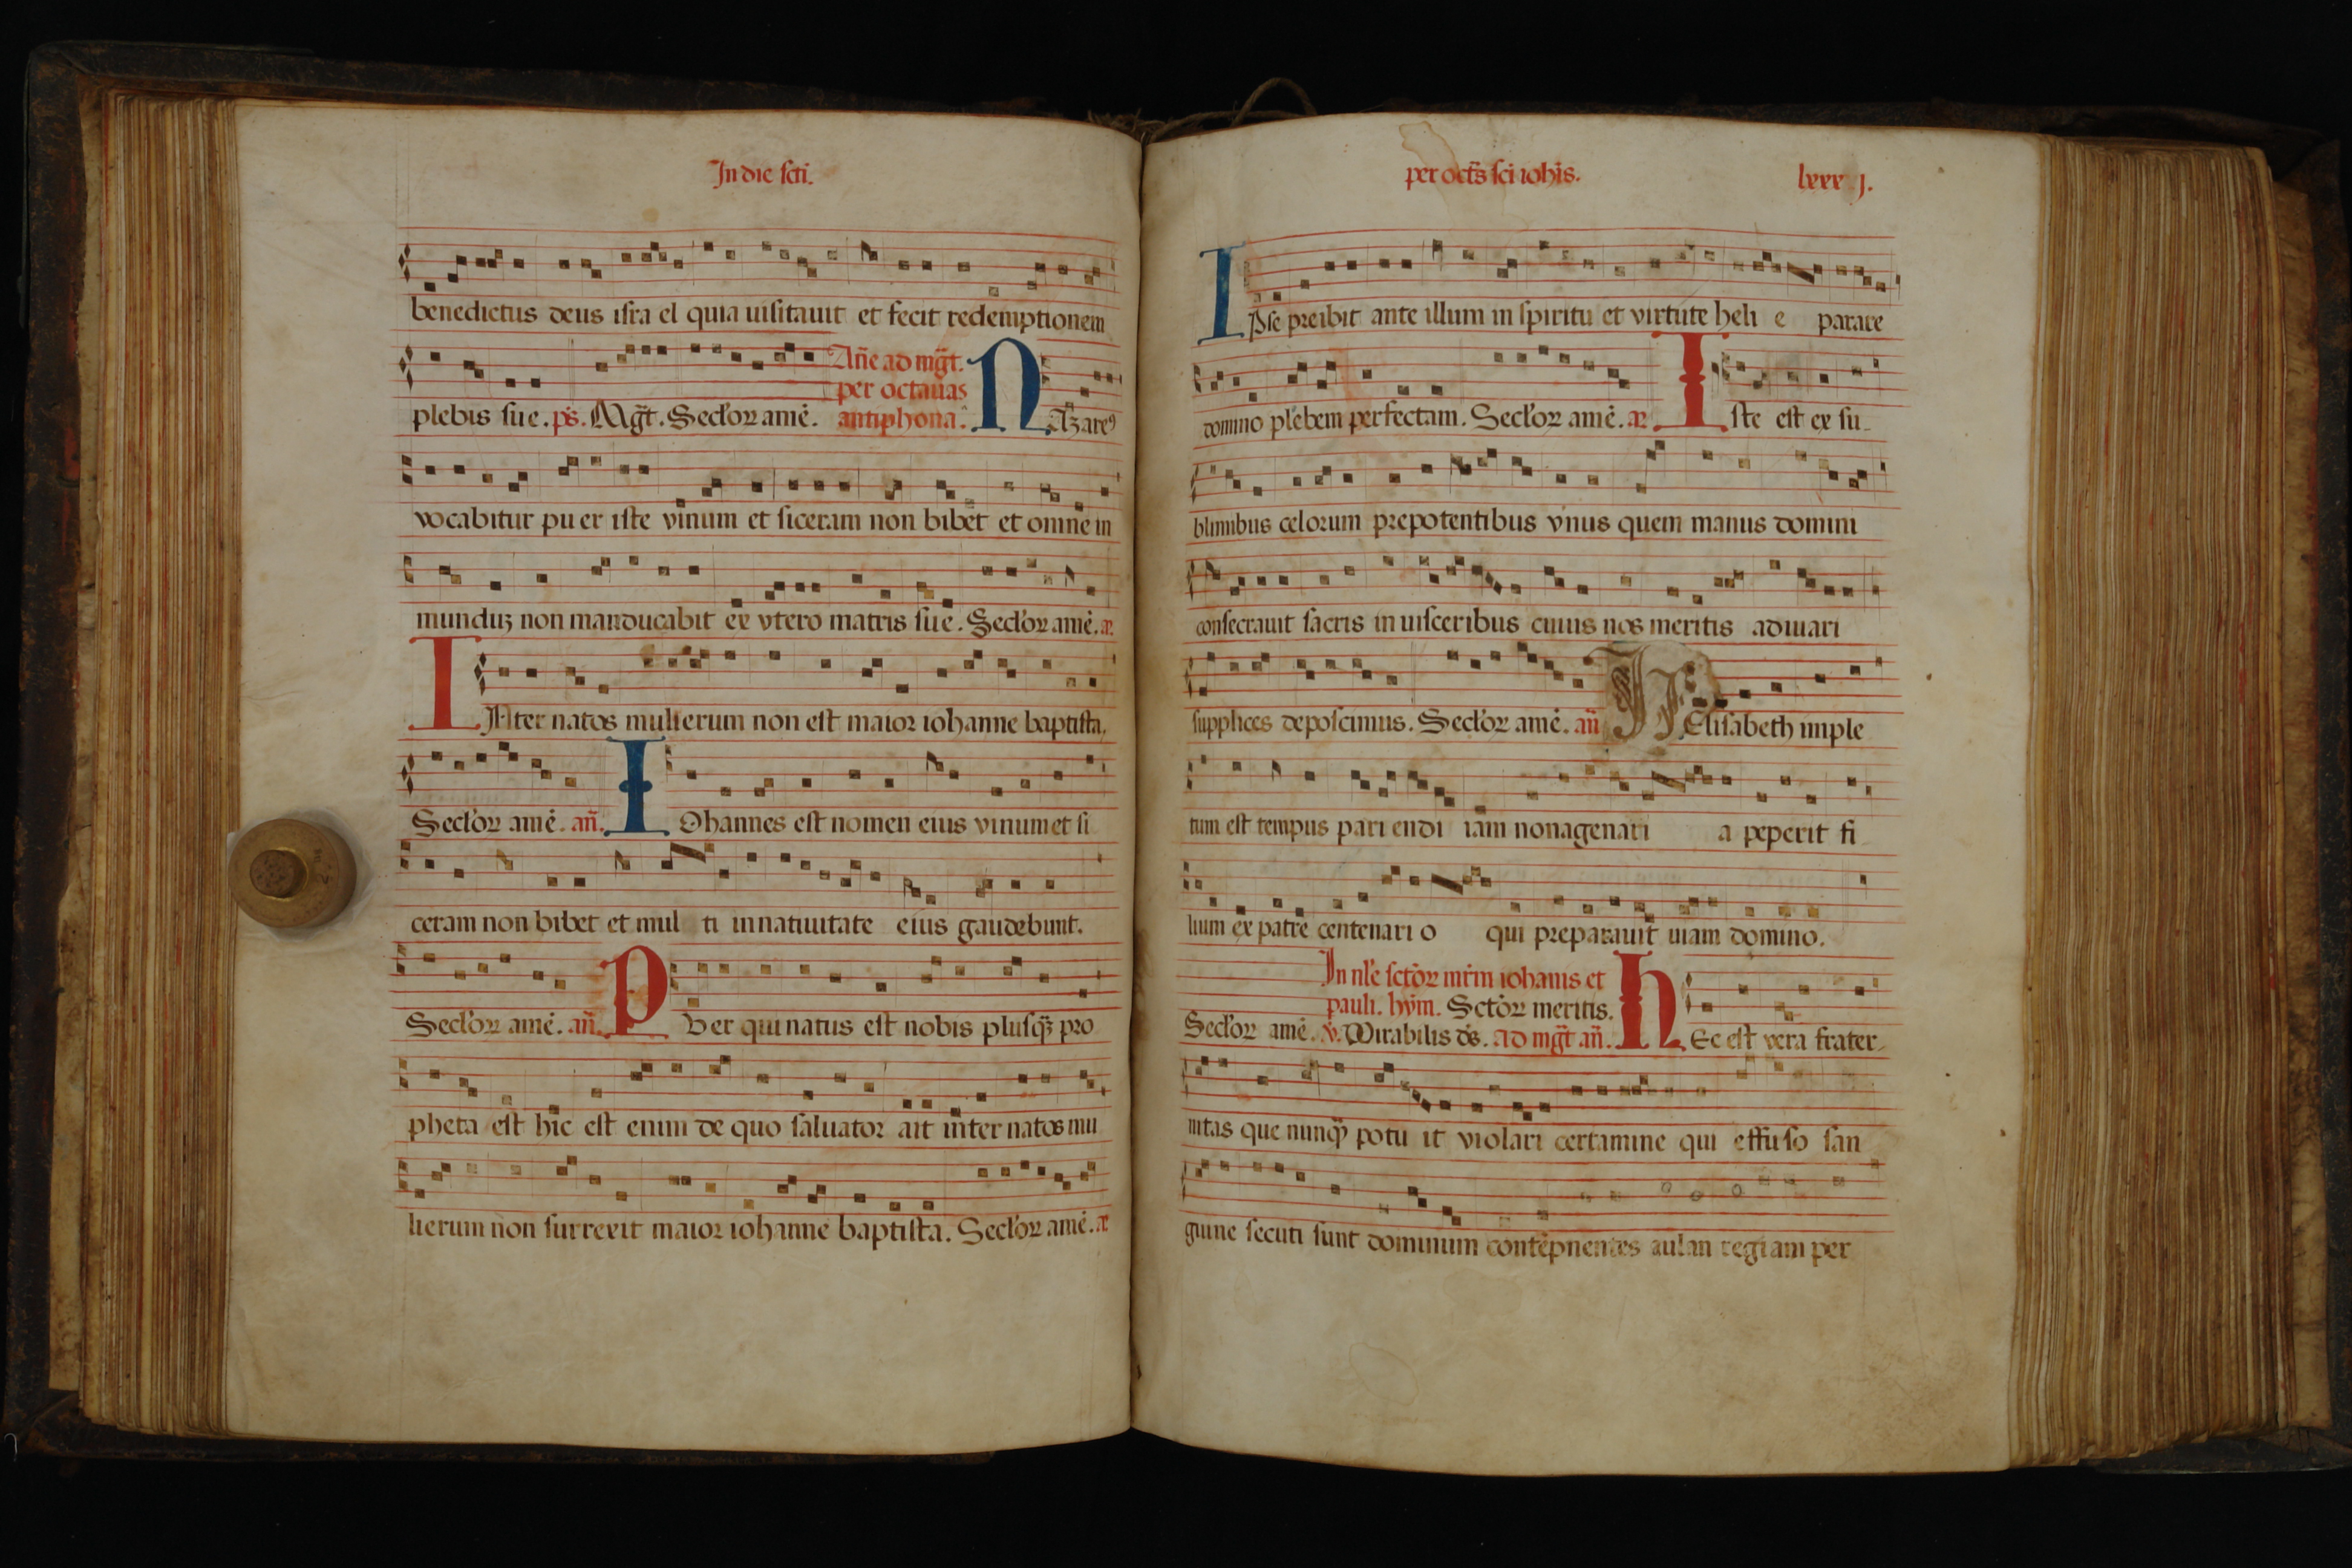 In die scti.
benedictus deus isra el quia uisitauit et fecit redemptionem
plebis sue. ps. Mgt. Seclor amē. Añe ad mgt.
per octauas
antiphona. NAzareꝰ
vocabitur pu er iste vinum et siceram non bibet et omne in
munduꝫ non manducabit ex vtero matris sue. Seclor amē. ae
INter natos mulierum non est maior iohanne baptista.
Seclor amē. añ. IOhannes est nomen eius vinum et si
ceram non bibet et mul ti in natiuitate eius gaudebunt.
Seclor amē. añ. PUer qui natus est nobis plusqꝫ pro
pheta est hic est enim de quo saluator ait inter natos mu
lierum non surrexit maior iohanne baptista. Seclor amē. ae
per octs sci iohis. lxxx j.
IPse preibit ante illum in spiritu et virtute heli e parare
domino plebem perfectam. Seclor amē. ae Iste est ex su
blimibus celorum prepotentibus vnus quem manus domini
consecrauit sacris in uisceribus cuius nos meritis adiuuari
supplices deposcimus. Seclor amē. añ HElisabeth imple
tum est tempus pari endi iam nonagenari a peperit fi
lium ex patre centenari o qui preparauit uiam domino.
In nle sctor mrm iohanis et
pauli. hym. Sctor meritis.
Seclor amē. v. Mirabilis ds. ad mgt añ. HEc est vera frater
nitas que nunqꝫ potu it violari certamine qui effuso san
guine secuti sunt dominum contēpnentes aulan regiam per